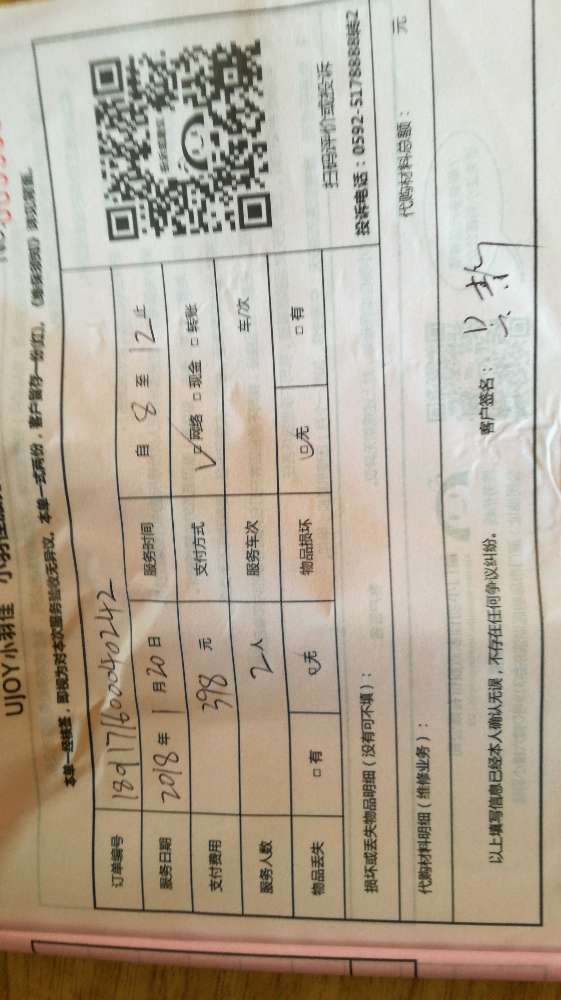 UJOY小羽佳
本单一经核签，即视为对本次服务验收无异议，本单一式两份，客户留存一份(红)。
订单编号 189171600040242
服务日期 2018年1月20日 服务时间 自 8 至 12 止
支付费用 398 元 支付方式 ☑网络 □现金 □转账
服务人数 2人 服务车次 车/次
物品丢失 □有 ☑无 物品损坏 ☑无 □有
扫码评价或投诉
投诉电话：0592-5178888转2
损坏或丢失物品明细（没有可不填）：
代购材料明细（维修业务）： 代购材料总额： 元
以上填写信息已经本人确认无误，不存在任何争议纠纷。 客户签名：